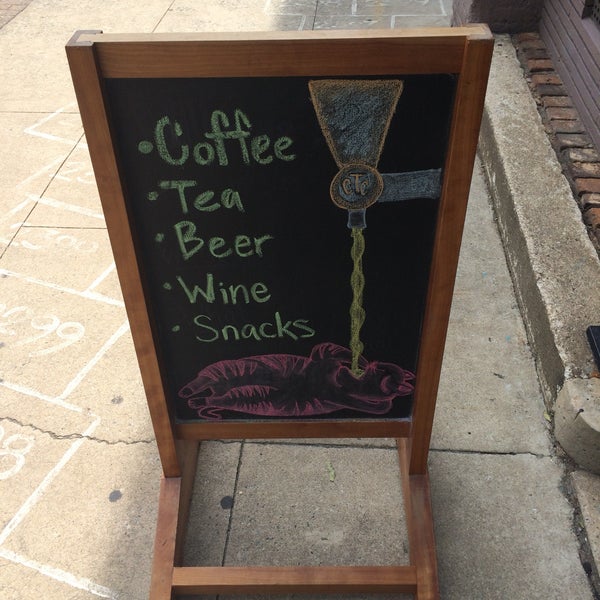 • Coffee
• Tea
• Beer
• Wine
• Snacks
CTC